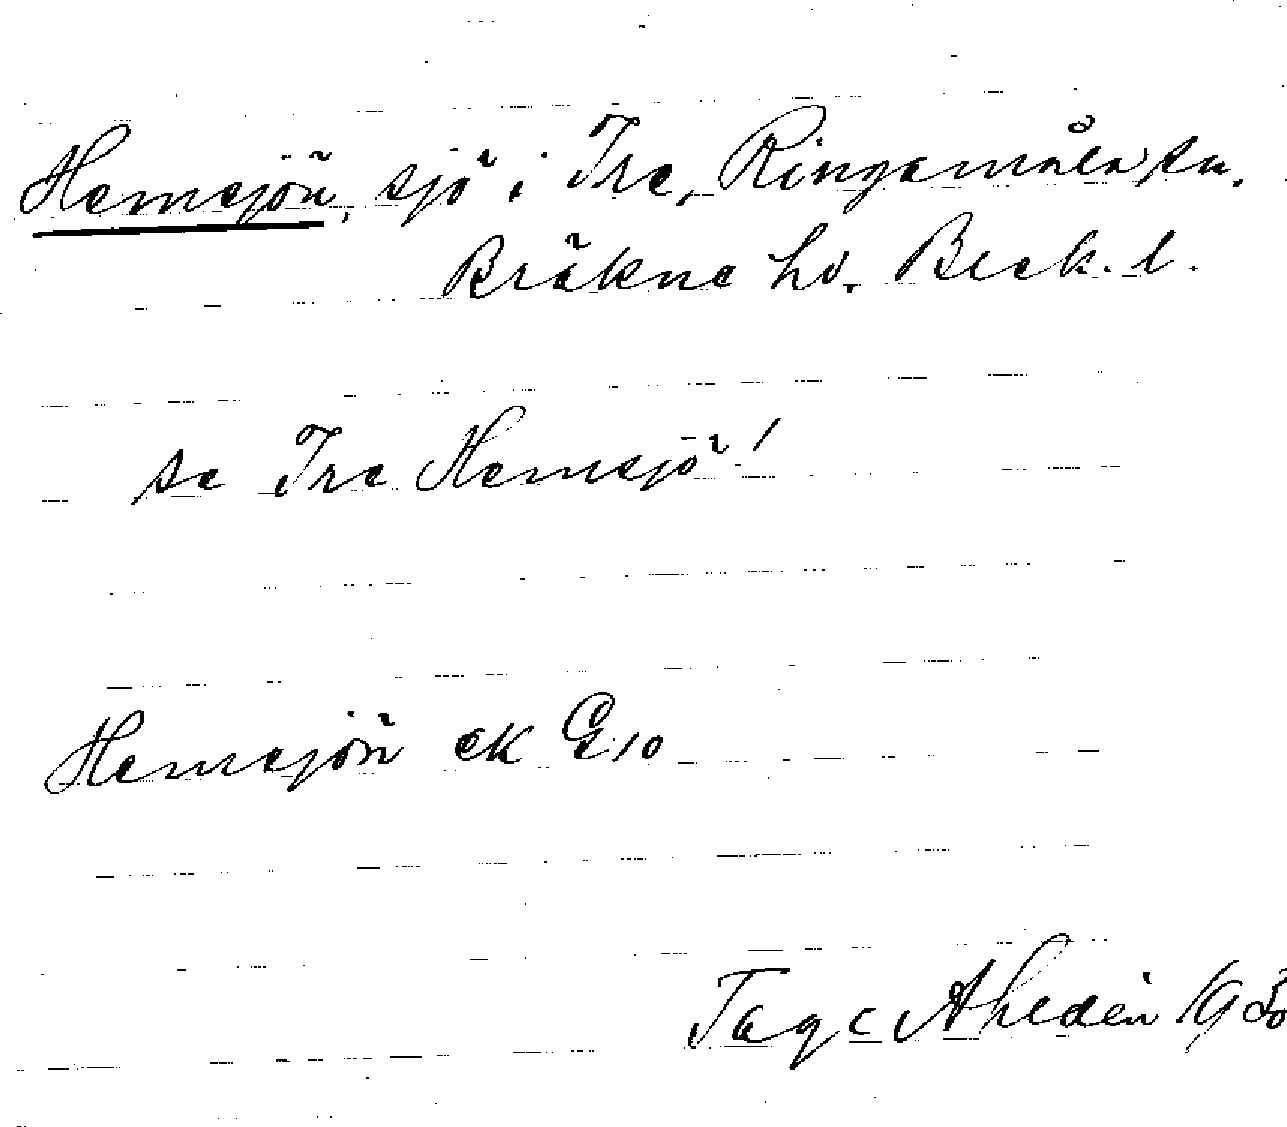 Hemsjön, sjö i Ire, Ringamåla sn.
Bräkne hd. Blek. l.
se Ire Hemsjö!
Hemsjön ek G 10
Tage Ahldén 19